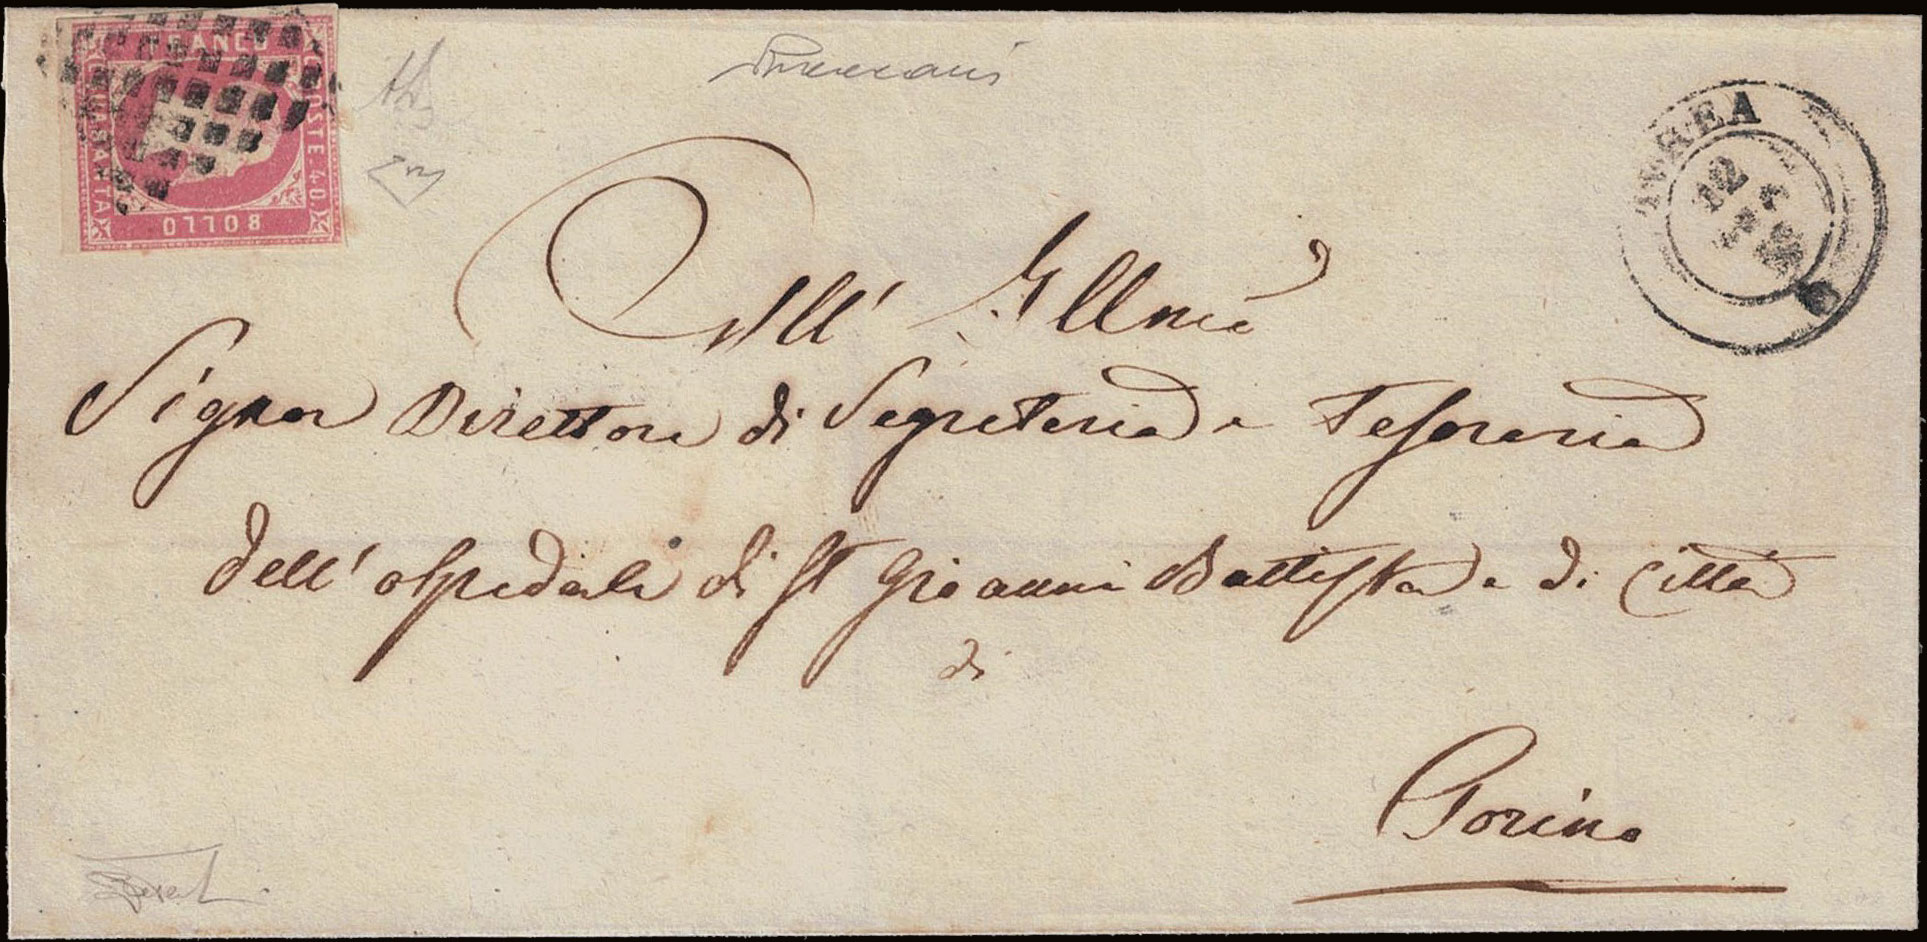 FRANCO
POSTE.40.
QUARANTA
BOLLO
IVREA
12
All' Illmo
Signor Direttore di Segreteria e Tesoreria
dell' ospedale di St Gioanni Battista e di Città
di
Torino